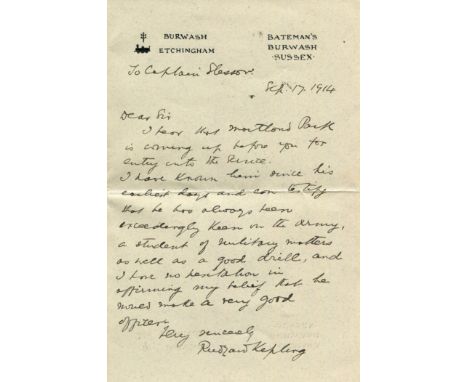 BURWASH
ETCHINGHAM
BATEMAN'S
BURWASH
SUSSEX.
To Captain Slessor.
Sep. 17. 1914
Dear Sir
I hear that Park
is coming up before you for
entry into the Service.
I have known him since his
earliest days and can testify
that he has always been
exceedingly keen on the Army,
a student of military matters
as well as a good drill, and
I have no hesitation in
affirming my belief that he
would make a very good
officer.
Very sincerely
Rudyard Kipling